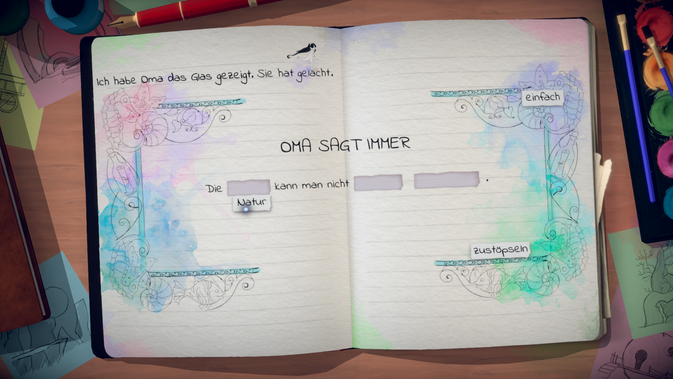 Ich habe Oma das Glas gezeigt. Sie hat gelacht.
einfach
OMA SAGT IMMER
Die kann man nicht .
Natur
zustöpseln